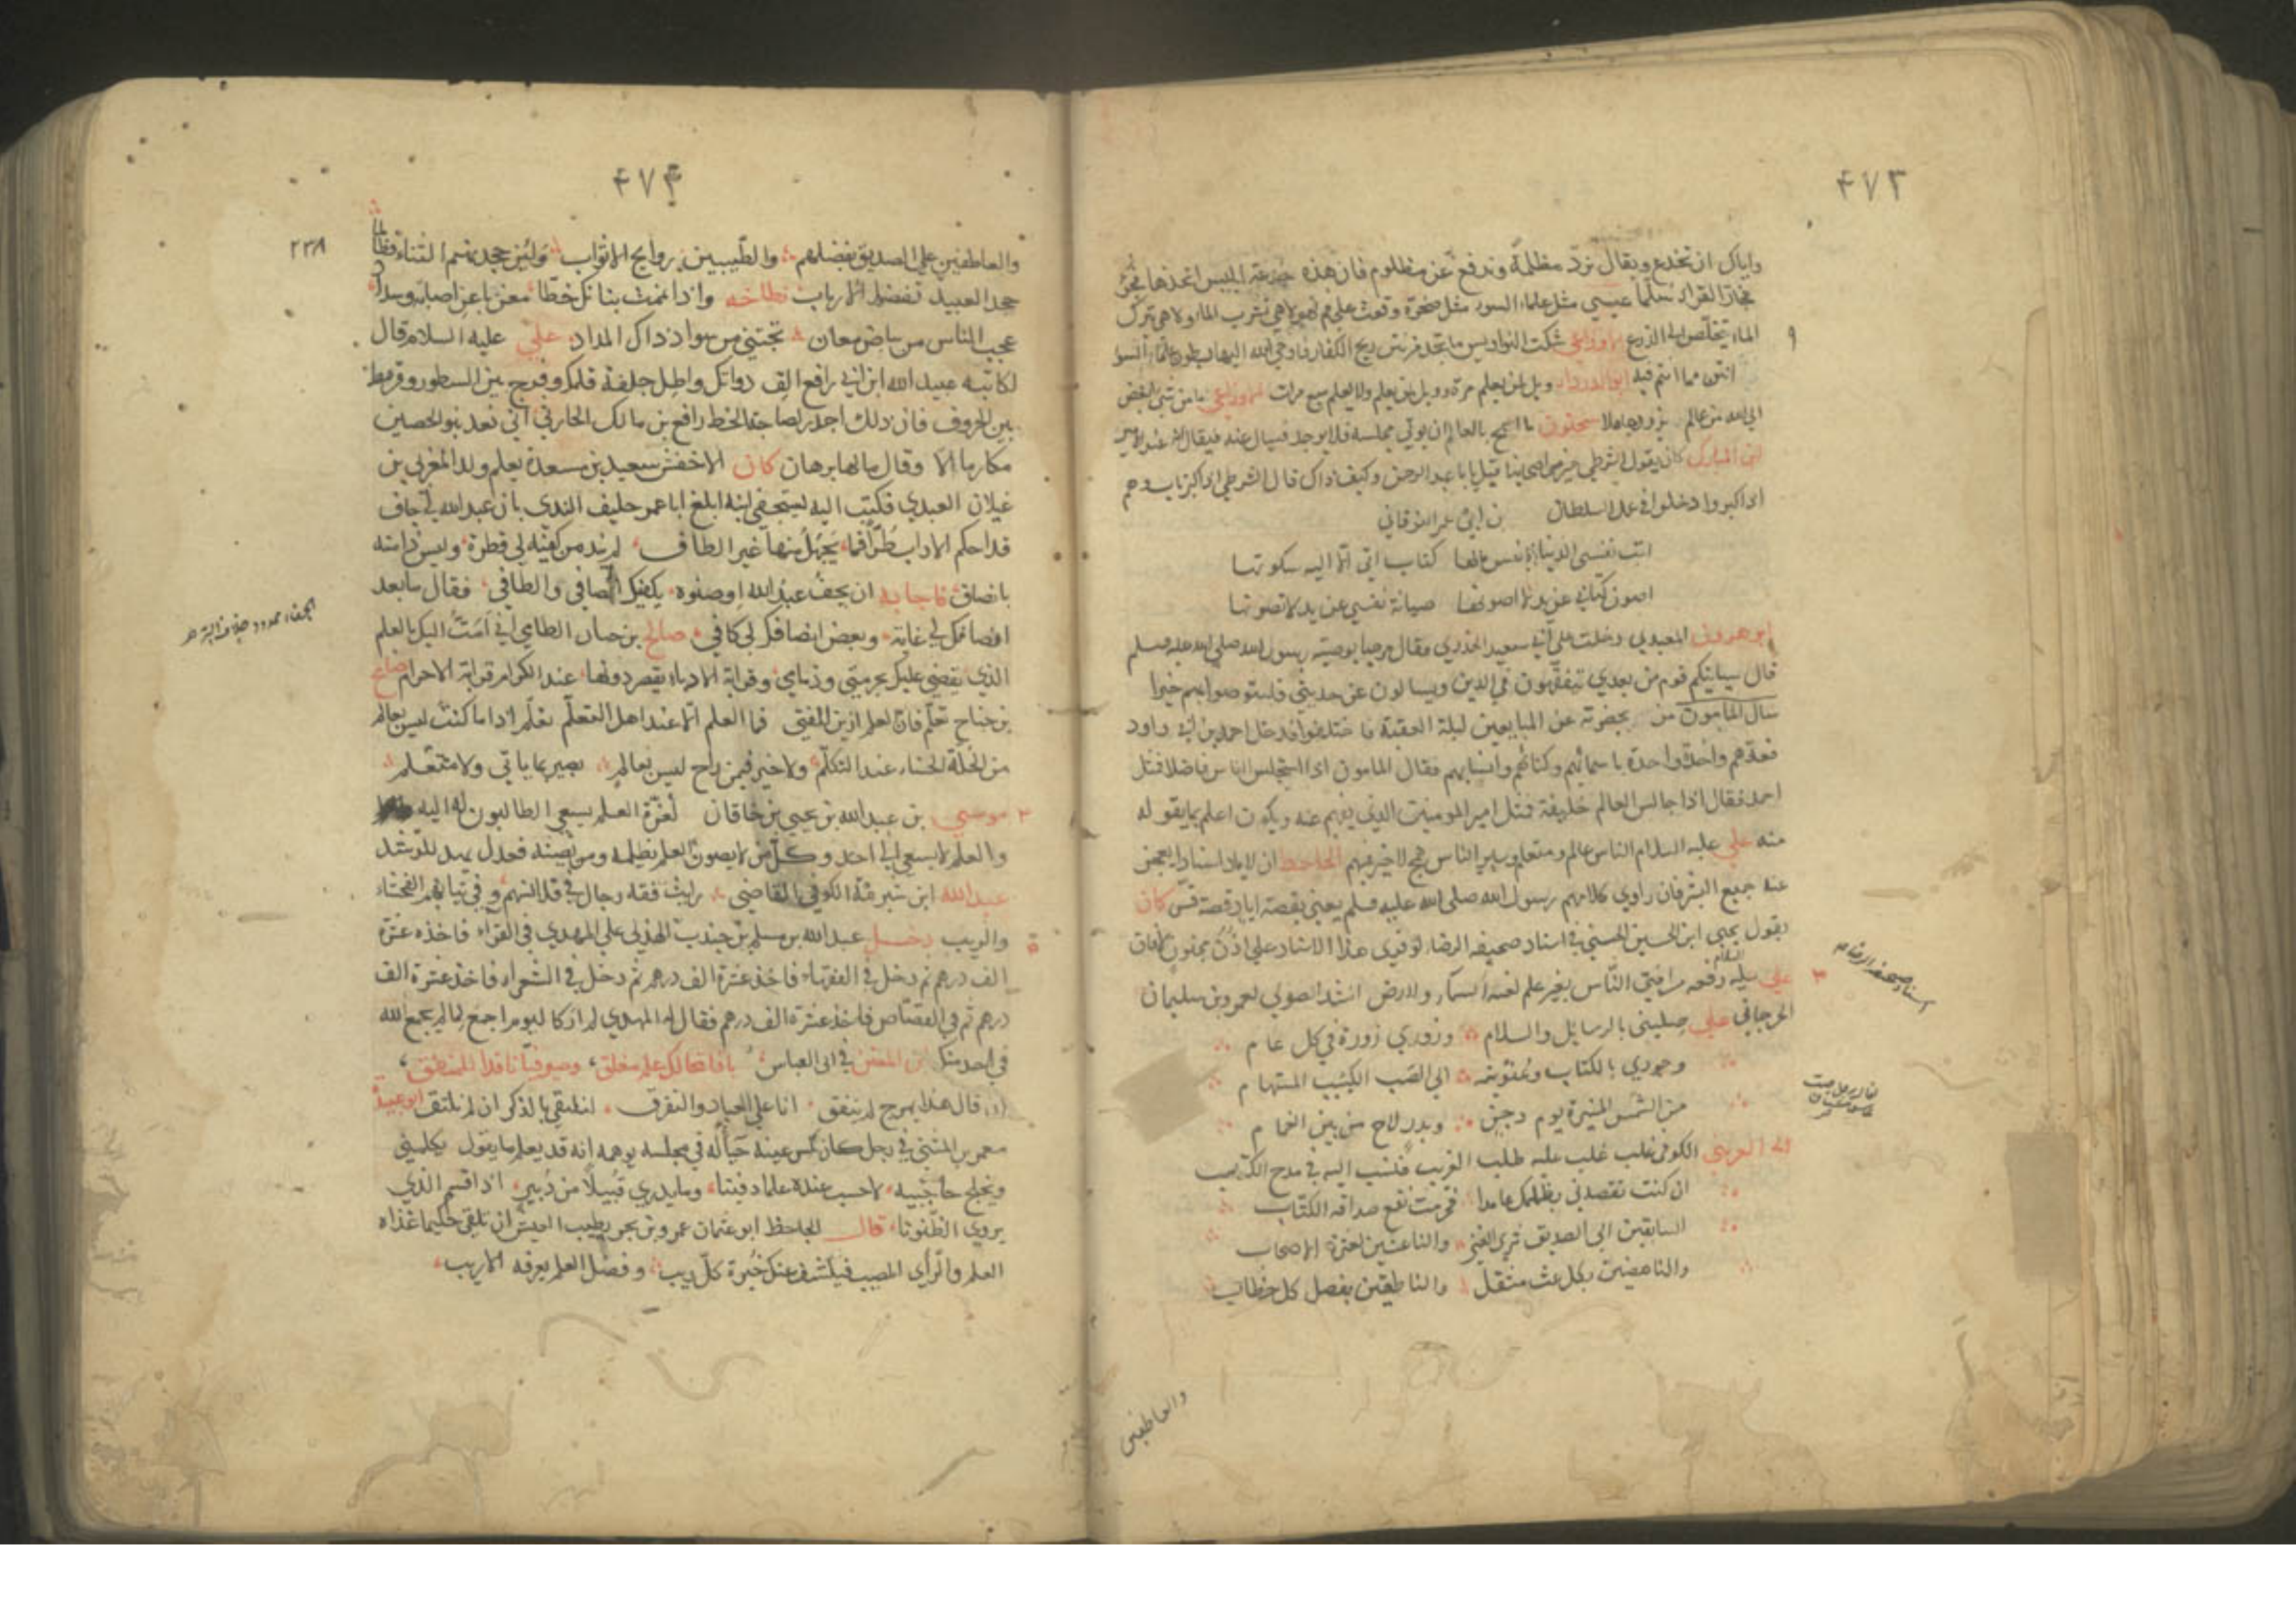 ٤٧٣
واياك ان تخدع ويقال نرد مظلمة وندفع عن مظلوم فان هذه خدعة ابليس اتخذها فجر
القراء سلما عيسى مثل علماء السوء مثل صخرة وقعت على فم النهر لا هي تشرب الماء ولا هي تترك
الماء يتخلص الى الزرع الاوزاعي شكت النواويس ما تجد من نتن ريح الكفار فاوحى الله اليها بطون علماء السوء
انتن مما انتم فيه ابو الدرداء ويل لمن لا يعلم مرة وويل لمن يعلم ولا يعمل سبع مرات الاوزاعي ما من شيء ابغض
الى الله من عالم يزور عاملا سحنون ما اسمج بالعالم ان يؤتى مجلسه فلا يوجد فيسال عنه فيقال انه عند الامير
ابن المبارك كان يقول الشرطي خير من اصحابنا قيل يا ابا عبد الرحمن وكيف ذاك قال الشرطي اذا كبر تاب وهم
اذا كبروا دخلوا في عمل السلطان بن ابي عمر النوقاني
كتاب اتى اليه سكوتها
صيانة نفسي عن يد لا تصونها
ابو هرون العبدي دخلت على ابي سعيد الخدري فقال مرحبا بوصية رسول الله صلى الله عليه وسلم
قال سياتيكم قوم من بعدي يتفقهون في الدين ويسالون عن حديثي فاستوصوا بهم خيرا
سال المامون من بحضرته عن المبايعين ليلة العقبة فاختلفوا فدخل احمد بن ابي داود
فعدهم واحدا واحدا باسمائهم وكناهم وانسابهم فقال المامون اذا استجلس الناس فاضلا فمثل
احمد فقال اذا جالس العالم خليفة فمثل امير المومنين الذي يفهم عنه ويكون اعلم بما يقوله
منه علي عليه السلام الناس عالم ومتعلم وساير الناس همج لا خير فيهم الجاحظ ان لاياد اسنادا يعجز
عنه جميع البشر فان راوي كلامهم رسول الله صلى الله عليه وسلم يعني بقصة اياد قصة قس كان
يقول يحيى ابن الحسين الحسني في اسناد صحيفة الرضا لو قرئ هذا الاسناد على اذن مجنون لافاق
علي عليه السلام رفعه من افتى الناس بغير علم لعنته السماء والارض انشد الصولي لعمرو بن سليمان
الجرجاني صليني بالرسايل والسلام وزوري زورة في كل عام
وجودي بالكتاب وعنونيه الى الصب الكئيب المستهام
من الشمس المنيرة يوم دجن وبدر لاح من بين الغمام
الكوفي غلب عليه طلب الغريب فنسب اليه في مدح الكتب
ان كنت تقصدني بظلمك عامدا فحرمت نفع صداقة الكتاب
السابقين الى الصديق ثرى الغنى والناعشين لعثرة الاصحاب
والناهضين بكل عبء مثقل والناطقين بفصل كل خطاب
اسناد صحيفة الرضا
والعاطفين
٤٧٤
٢٣٨
والعاطفين على الصديق بفضلهم والطيبين روايح الاثواب ولئن جحدتهم الثناء فطالما
جحد العبيد تفضل الارباب واذا نمنمت بنانك خطا معربا عن اصابة وسداد
عجب الناس من بياض معان تجتنى من سواد ذاك المداد علي عليه السلام قال
لكاتبه عبيد الله ابن ابي رافع الق دواتك واطل جلفة قلمك وفرج بين السطور وقرمط
بين الحروف فان ذلك اجدر بصباحة الخط رافع بن مالك الحارثي اني تعد بنو الحصين
مكارما الا وقال مالها برهان كان الاخفش سعيد بن مسعدة يعلم ولد المغربي بن
غيلان العبدي فكتب اليه يستجفي ابنه ابلغ ابا عمر حليف الندى بان عبد الله لي جاف
قد احكم الاداب طرا فما يجهل منها غير الطاف لم يند من كفيه لي قطرة وليس ذا منه
بانصاف فاجابه ان يجف عبد الله او صنوه يكفيك الصافي والطافي فقال ما بعد
انصافك لي غاية وبعض انصافك لي كافي صالح بن حسان الطاي اني امت اليك بالعلم
الذي يقضي عليك بحرمتي وذمامي وقرابة الادباء يقصر دونها عند الكرام قرابة الارحام صالح
بن جناح تعلم فان العلم ازين للفتى فما العلم الا عند اهل التعلم تعلم اذا ما كنت ليس بعالم
من الحلة الحسناء عند التكلم ولا خير فيمن راح ليس بعالم بصير بما ياتي ولا متعلم
موسى بن عبد الله بن يحيى بن خاقان لعزة العلم يسعى الطالبون له اليه
والعلم لا يسعى الى احد وكل من لا يصون العلم يظلمه ومن يصنه فعدل يهد للرشد
عبد الله ابن شبرمة الكوفي القاضي رايت فقه رجال في قلانسهم وفي ثيابهم الفحشاء
والريب دخل عبد الله بن مسلم بن جندب الهذلي على المهدي في القراء فاخذ عشرة
الف درهم ثم دخل في الفقهاء فاخذ عشرة الف درهم ثم دخل في الشعراء فاخذ عشرة الف
درهم ثم في القصاص فاخذ عشرة الف درهم فقال له المهدي لم ار كاليوم اجمع لما لم يجمع الله
في احد منك ابن المعتز في ابي العباس يا فاتحا لكل علم مغلق وصيرفيا ناقدا للمنطق
قال هذا بهرج لم ينفق انا على البعاد والتفرق لنلتقي بالذكر ان لم نلتق ابو عبيدة
معمر بن المثنى في رجل كان كيس عينه خباله في مجلسه يوهمه انه قد يعلم ما يقول يكلمني
ويخلج حاجبيه لاحسب عنده علما دفينا وما يدري قبيلا من دبير اذا قسم الذي
يروي الظنونا قال الجاحظ ابو عثمان عمرو بن بحر يطيب العيش ان تلقى حكيما غذاه
العلم والراي المصيب فيكشف عنك حيرة كل ريب وفضل العلم يعرفه الاريب